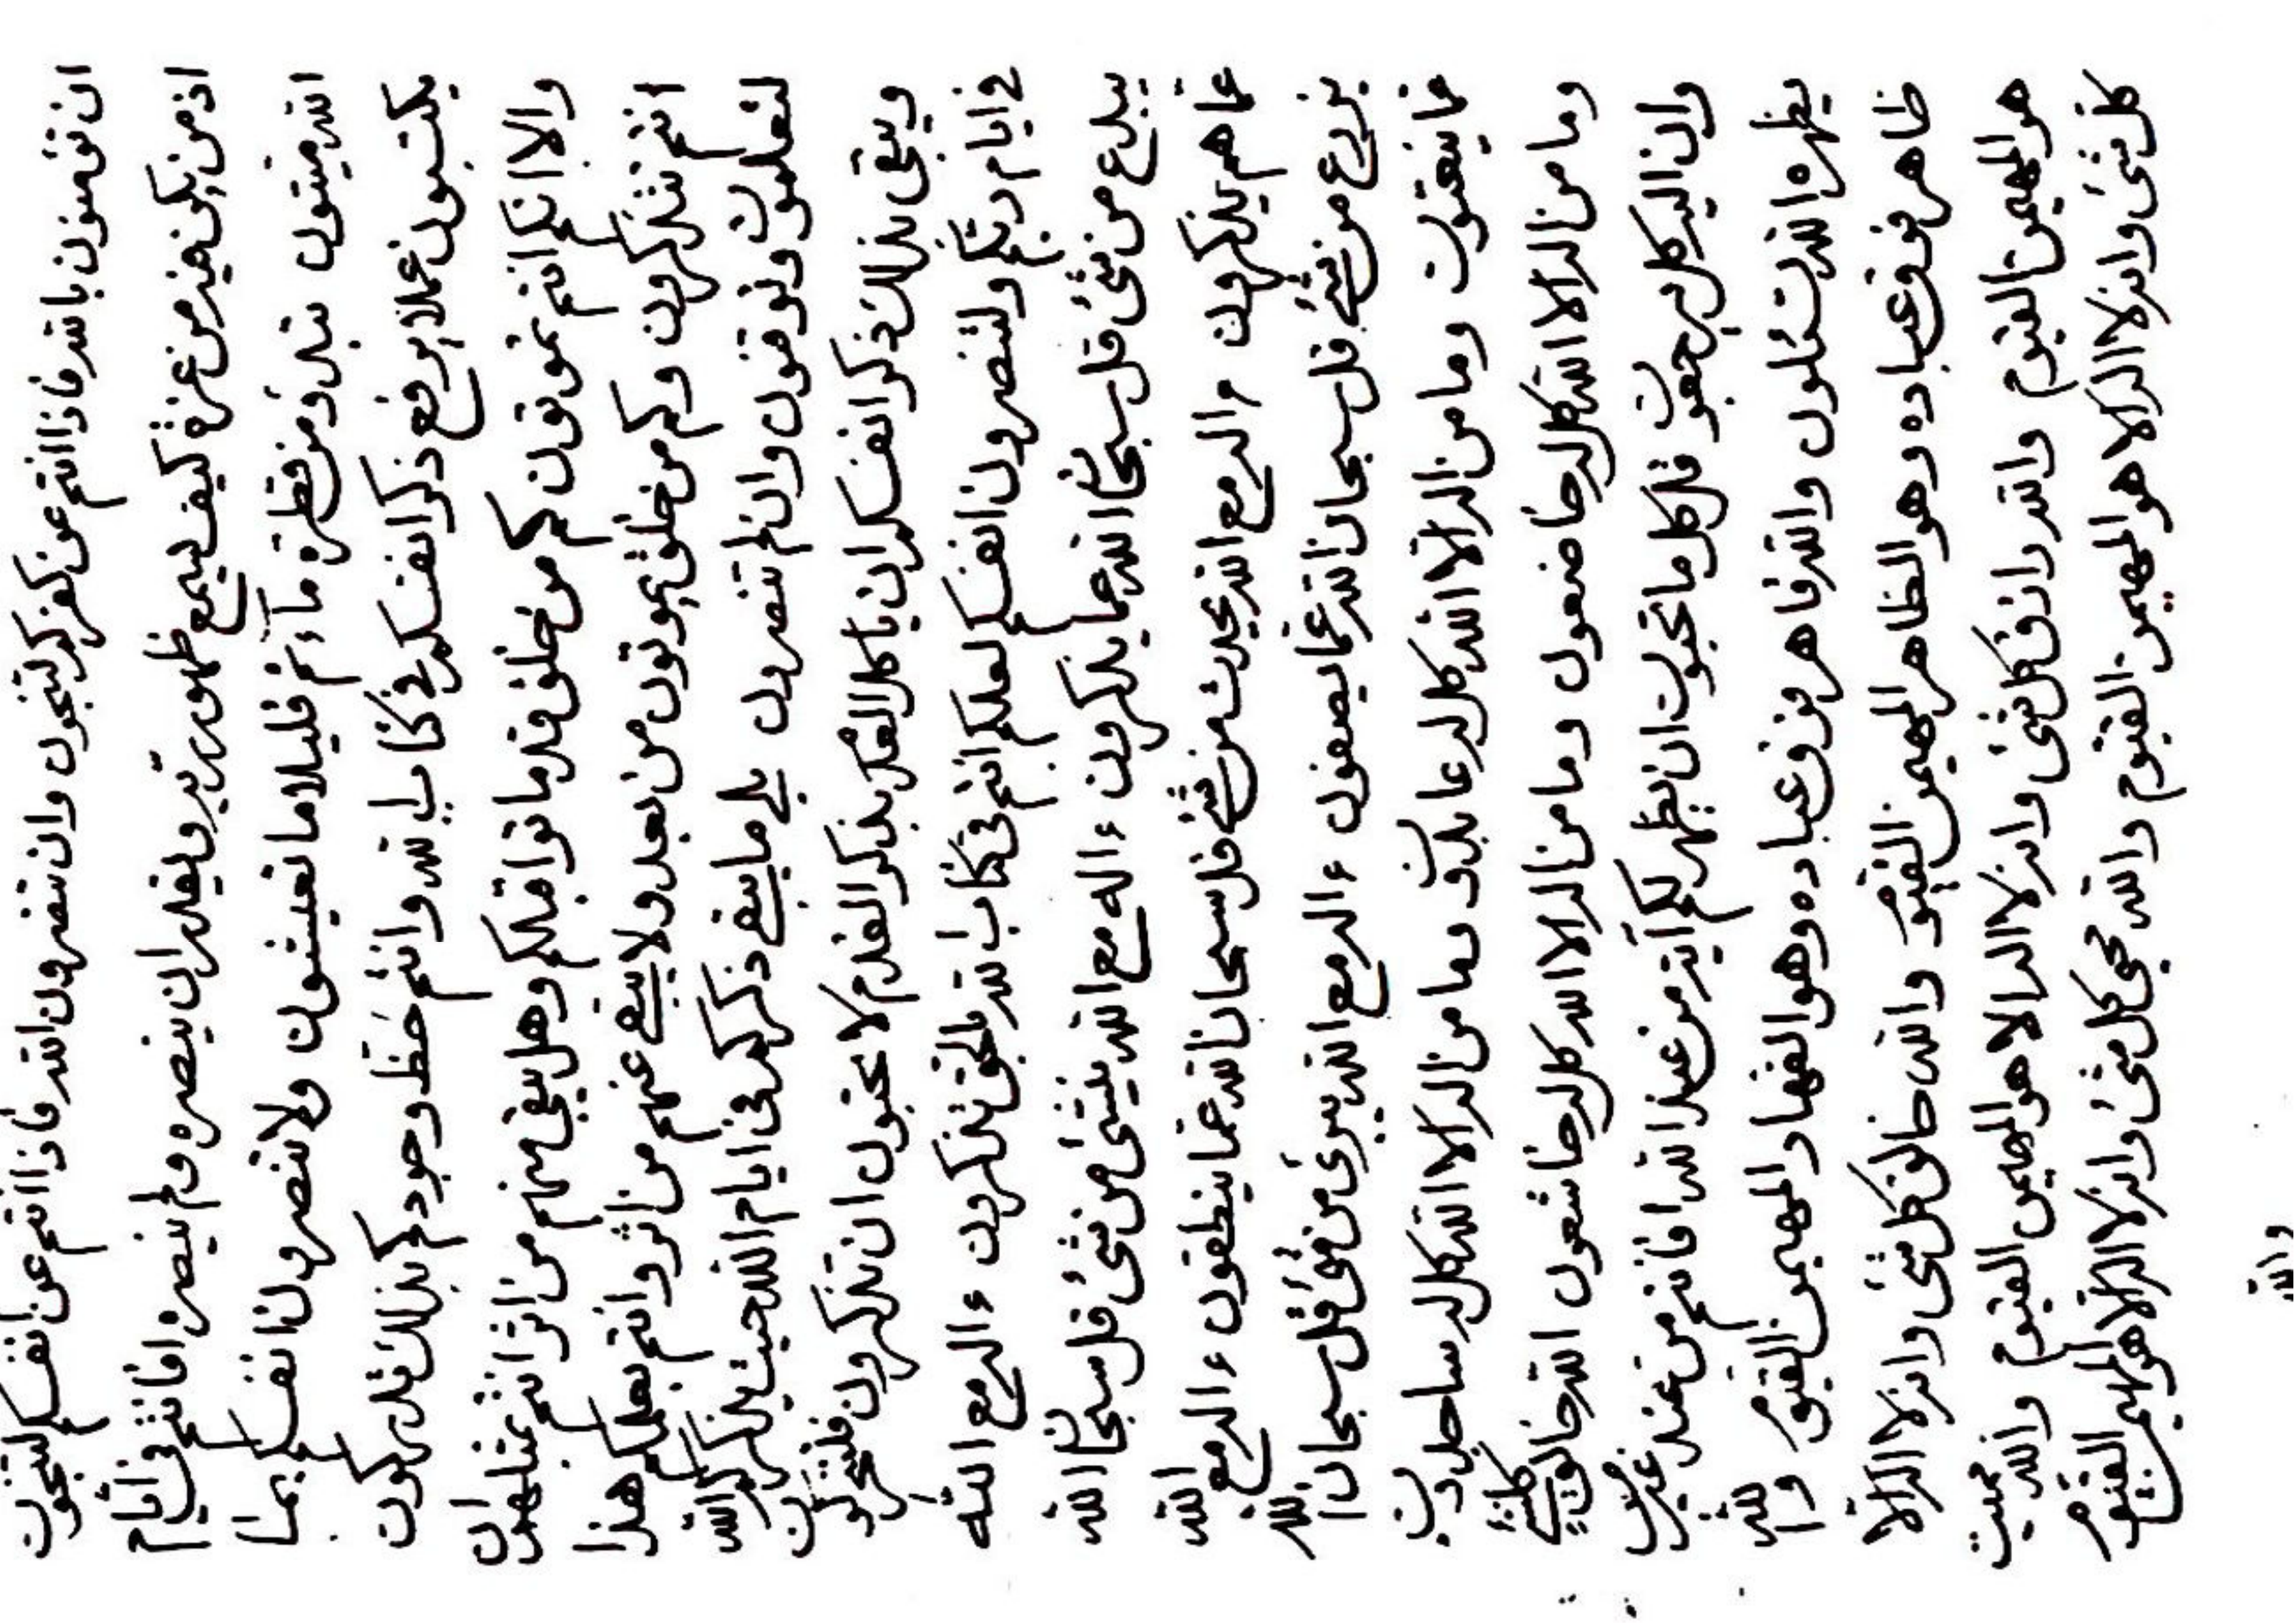 ان تؤمنون بالله فاذا انتم عن كفركم لتنجون وان تنصرون الله فاذا انتم عن انفسكم لتنجون
اذ من يكن فيه من عزة كيف يسمع ظهور ربه ويقدر ان ينصره ولم ينصر افانتم في ايام
الله ميتون بلى ومن قطرة ماء انتم قليلا ما تعيشون ولا تنصرون انفسكم بما
يكتبون عملا يرفع ذكر انفسكم في كتاب الله وانتم حفظ وجودكم بذلك تدركون
والا انكم انتم تموتون كم من خلق قد ماتوا قبلكم وهل بقي منهم من اثر انتم بمثلهم ان
انتم تتذكرون وكم من خلق يموتون من بعد ولا يبقى عنهم من اثر وانتم بعلمكم هذا
لتعلمون وتوقنون وان لم تنصرون بلى ما يبقى ذكركم في ايام الله حيث يذكركم الله
ويبقى بذلك ذكر انفسكم ان يا كل العلم بذكر القدم لا تحبون ان تذكرون فلتشكرون
في ايام ربكم ولتنصرون انفسكم لعلكم انتم في كتاب الله بالحق تذكرون ءاله مع الله
يبدع من شئ قل سبحان الله عما يذكرون ءاله مع الله ينشئ من شئ قل سبحان الله
عما هم يذكرون ءاله مع الله يحدث من شئ قل سبحان الله عما ينطقون ءاله مع الله
يزرع من شئ قل سبحان الله عما يصفون ءاله مع الله يبرئ من شئ قل سبحان الله
عما ينعتون وما من اله الا الله كل له عابدون وما من اله الا الله كل له ساجدون
وما من اله الا الله كل له خاضعون وما من اله الا الله كل له خاشعون الله خالق كلشئ
وان اليه كل يرجعون قل كل ما تحبون ان يظهر لكم آية من عند الله افانتم من عند غيره
يظهره الله تسئلون والله قاهر فوق عباده وهو القهار المهيمن القيوم والله
ظاهر فوق عباده وهو الظاهر المهيمن القيوم والله خالق كل شئ وانه لا اله الا
هو المهيمن القيوم والله رازق كل شئ وانه لا اله الا هو المهيمن القيوم والله مميت
كل شئ وانه لا اله الا هو المهيمن القيوم والله محيي كل شئ وانه لا اله الا هو المهيمن القيوم
والله